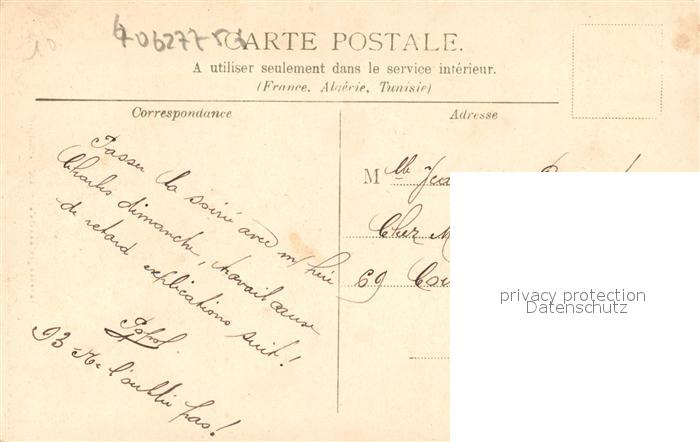 10
CARTE POSTALE.
A utiliser seulement dans le service intérieur.
(France, Algérie, Tunisie)
Correspondance
Adresse
Passer la soiré avec m/ frère
Charles dimanche, travail cause
de retard explications suit!
93 - Ne l'oublie pas!
Mlle
Chez M
69
privacy protection
Datenschutz